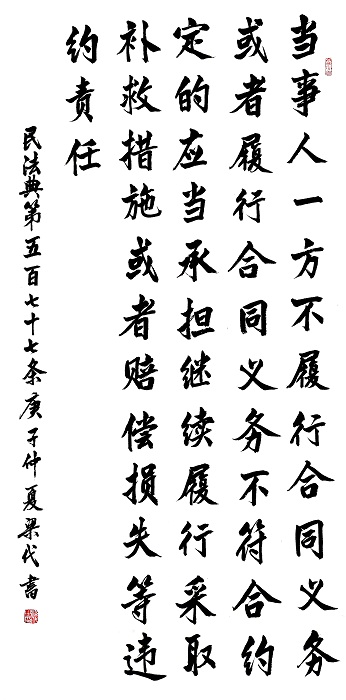 当事人一方不履行合同义务
或者履行合同义务不符合约
定的应当承担继续履行采取
补救措施或者赔偿损失等违
约责任
民法典第五百七十七条庚子仲夏梁代书